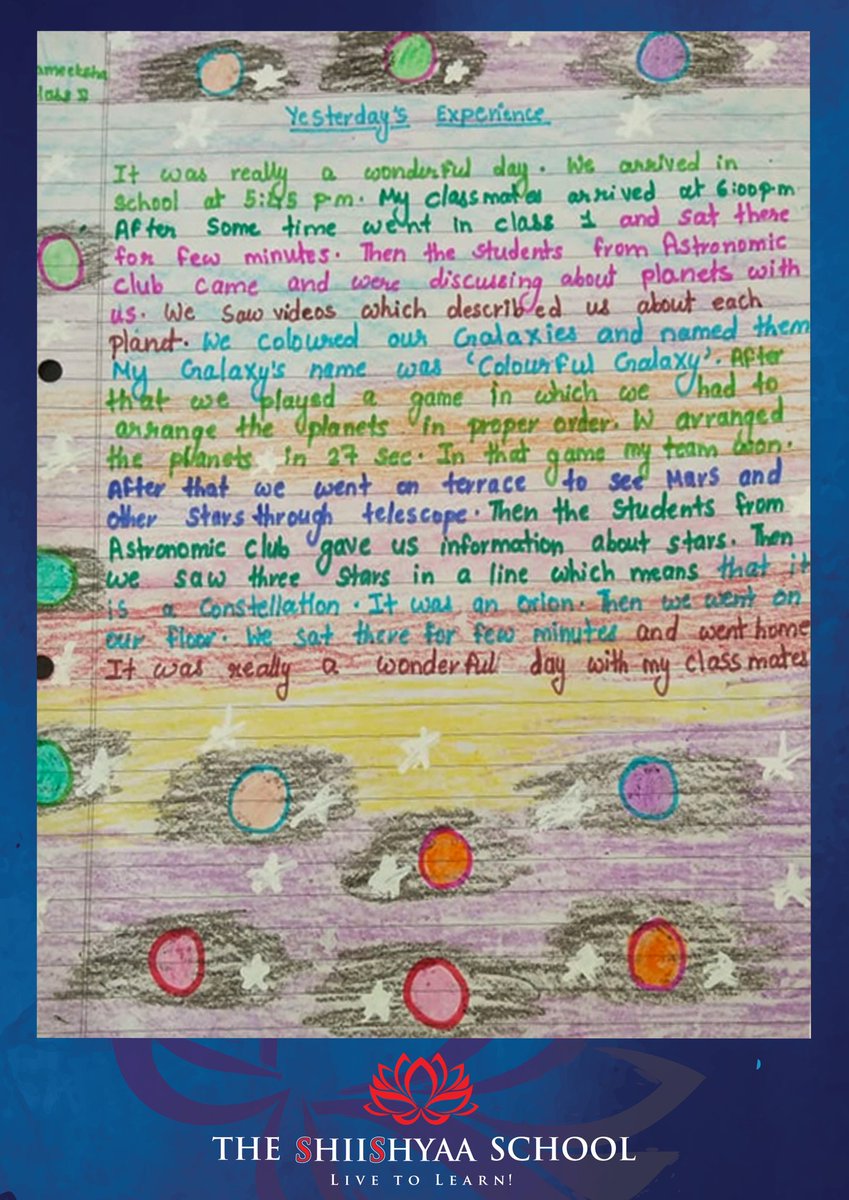 ameeksha
lass II
Yesterday's Experience
It was really a wonderful day. We arrived in
school at 5:45 p.m. My classmates arrived at 6:00 p.m
After some time went in class 1 and sat there
for few minutes. Then the students from Astronomic
club came and were discussing about planets with
us. We saw videos which described us about each
planet. We coloured our Galaxies and named them
My Galaxy's name was 'Colourful Galaxy'. After
that we played a game in which we had to
arrange the planets in proper order. W arranged
the planets in 27 sec. In that game my team won.
After that we went on terrace to see Mars and
other stars through telescope. Then the students from
Astronomic club gave us information about stars. Then
we saw three stars in a line which means that it
is a constellation. It was an orion. Then we went on
our floor. We sat there for few minutes and went home
It was really a wonderful day with my classmates
THE SHIISHYAA SCHOOL
LIVE TO LEARN!